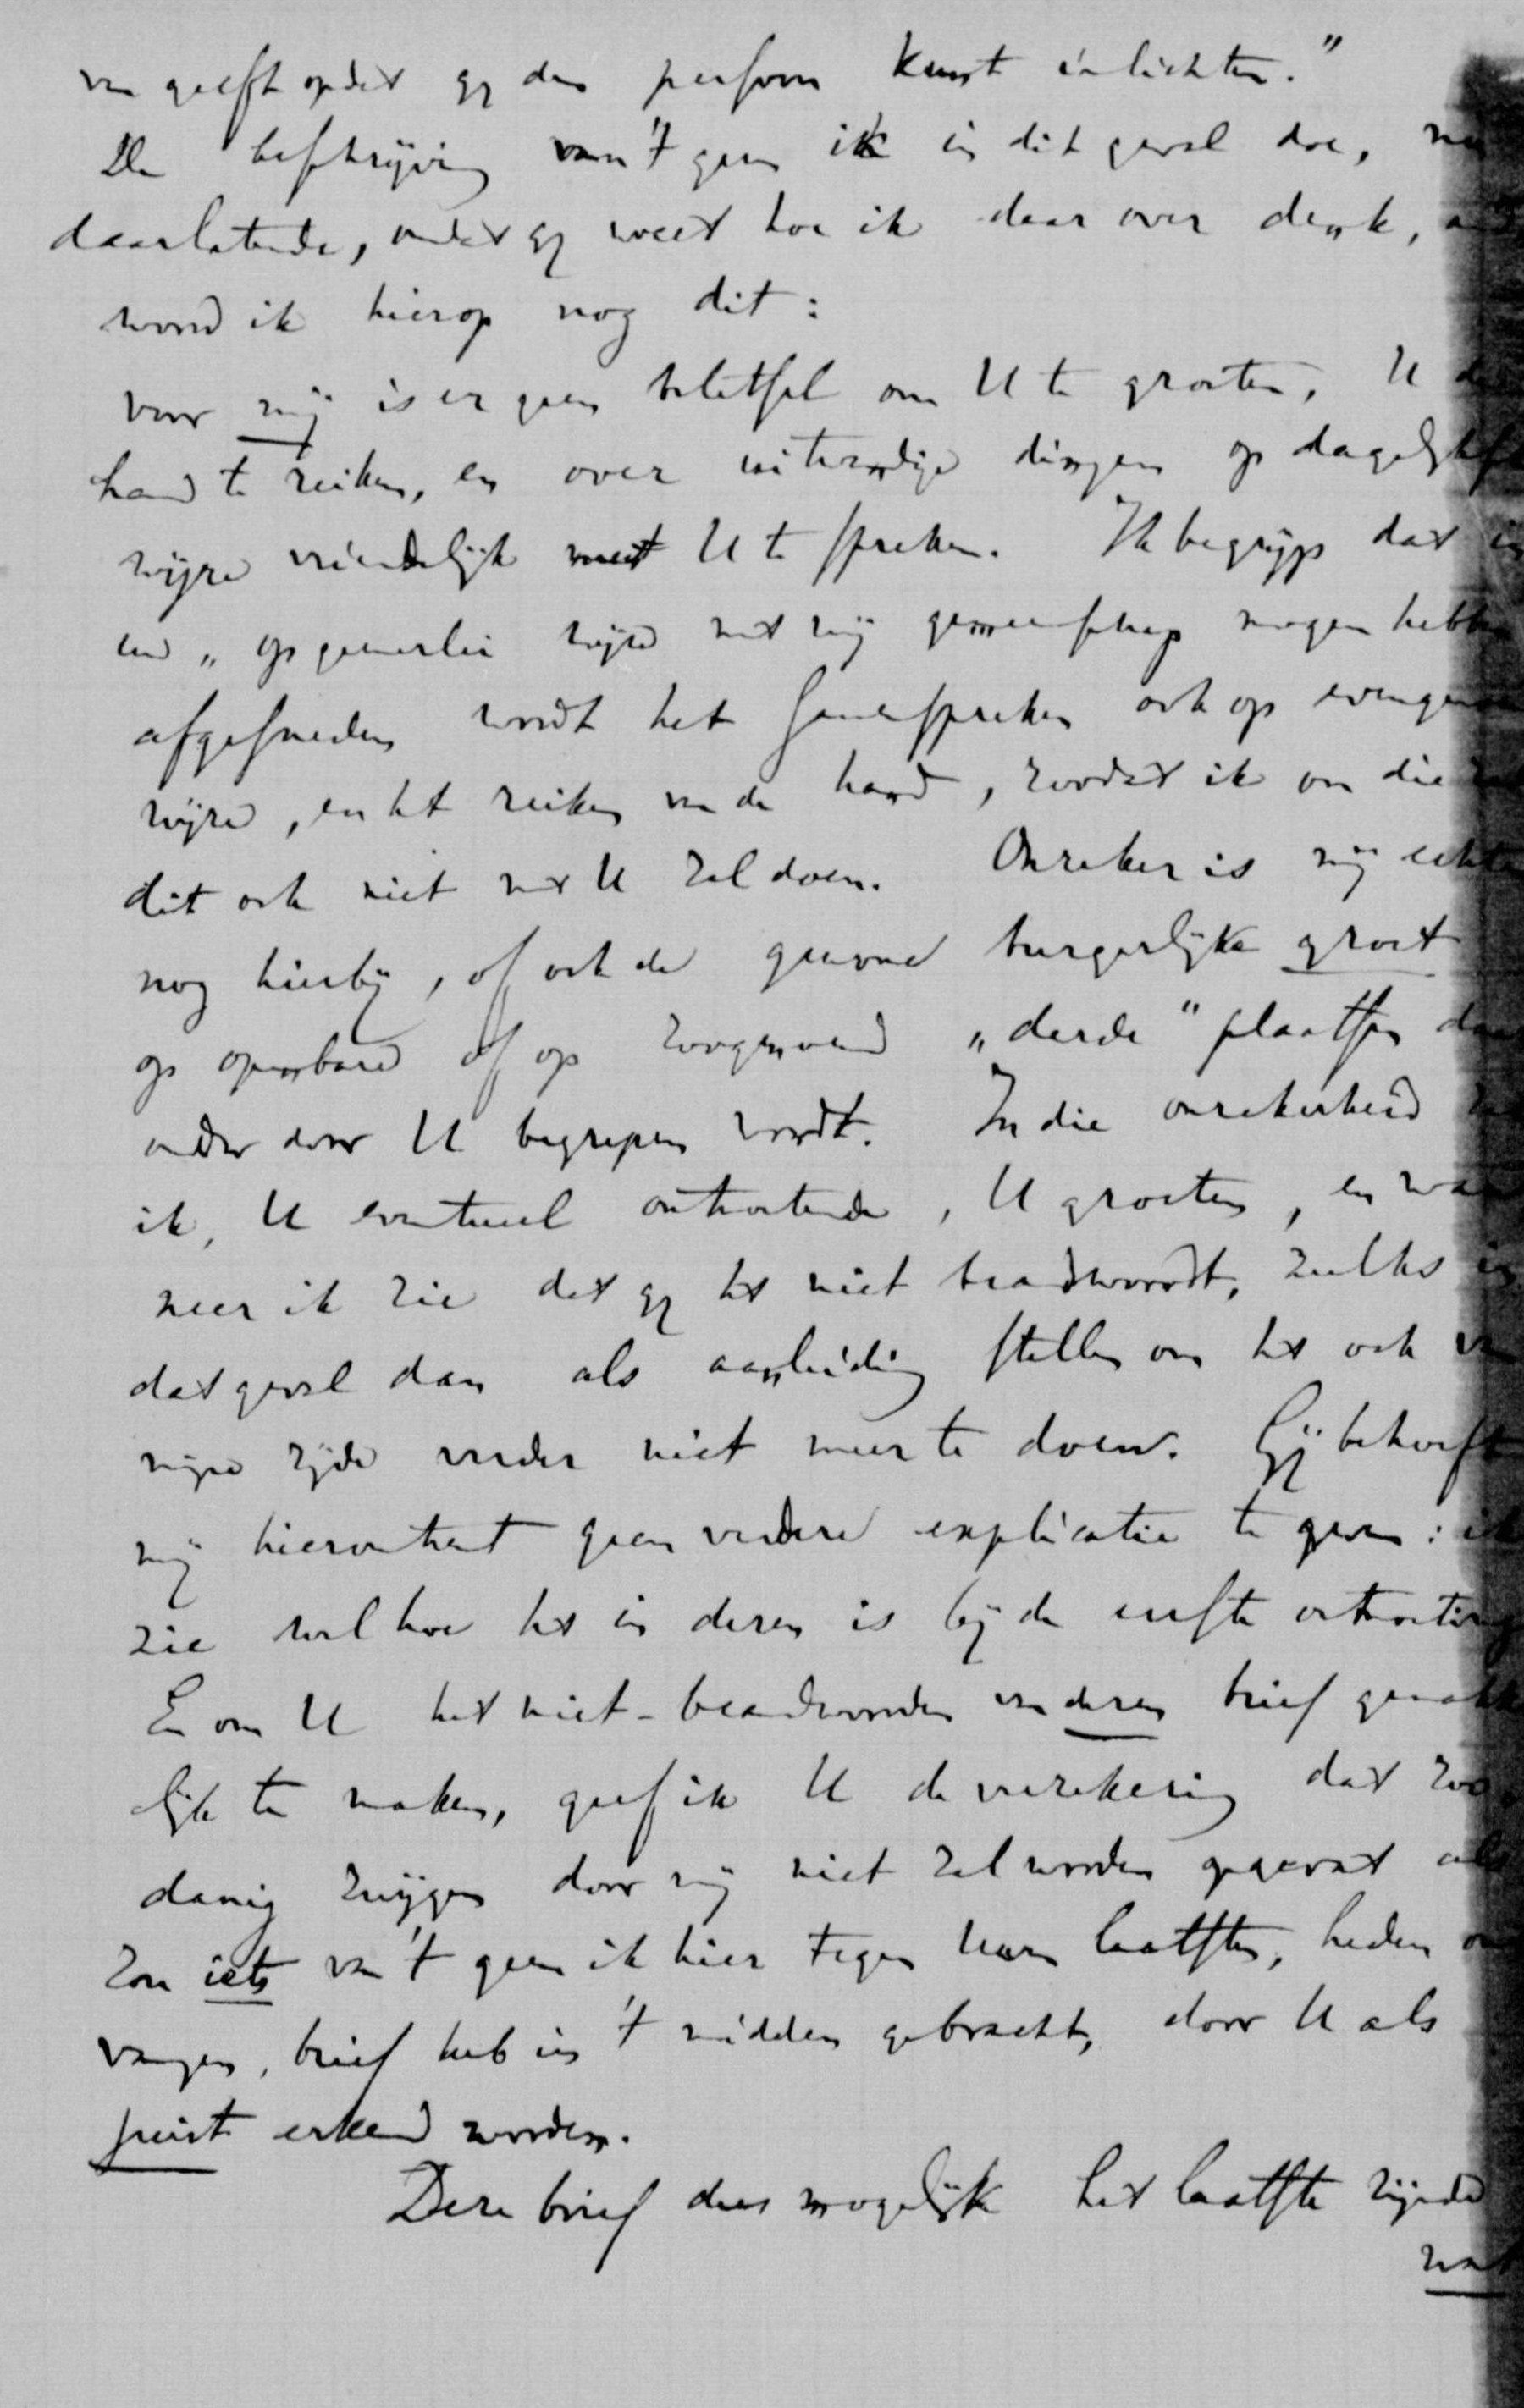 van geeft opdat gij den persoon kunt inlichten."
De beschrijving van 't geen ik in dit geval doe, nu
daarlatende, omdat gij weet hoe ik daar over denk,
woord ik hierop nog dit:
voor mij is er geen beletsel om U te groeten, U de
hand te reiken, en over uitwendige dingen op dagelijksch
wijze vriendelijk met U te spreken. Ik begrijp dat in
uw „op geenerlei wijze met mij gemeenschap mogen hebben
afgesneden wordt het samenspreken ook op eenige
wijze, en het reiken van de hand, zoodat ik om die
dit ook niet met U zal doen. Onzeker is mij echter
nog hierbij, of ook de gewone burgerlijke groet
op openbare of op zoogenaamd „derde" plaatsen daar
onder door U begrepen wordt. In die onzekerheid zal
ik, U eventueel ontmoetende, U groeten, en wan
neer ik zie dat gij het niet beantwoordt, zulks in
dat geval dan als aanleiding stellen om het ook van
mijne zijde verder niet meer te doen. Gij behoeft
mij hieromtrent geen verdere explicatie te geven: ik
zie wel hoe het in dezen is bij de eerste ontmoeting
En om U het niet-beantwoorden van dezen brief gemakke
lijk te maken, geef ik U de verzekering dat zoo
danig zwijgen door mij niet zal worden opgevat als
zou iets van 't geen ik hier tegen Uwen laatsten, heden ont
vangen, brief heb in 't midden gebracht, door U als
juist erkend worden.
Deze brief dus mogelijk het laatste zijnde
wat